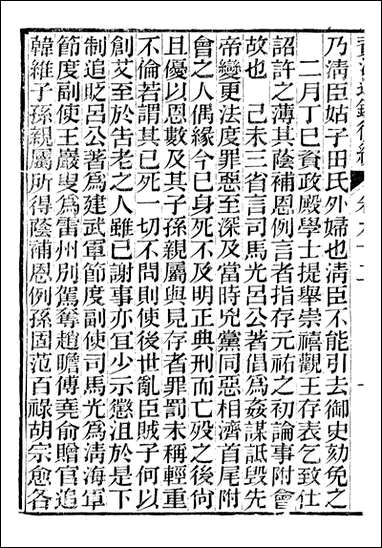 乃淸臣姑子田氏外婦也淸臣不能引去御史劾免之
二月丁巳資政殿學士提舉崇禧觀王存表乞致仕
詔許之薄其蔭補恩例言者指存元祐之初論事附會
故也　己未三省言司馬光呂公著倡爲姦謀詆毀先
帝變更法度罪惡至深及當時兇黨同惡相濟首尾附
會之人偶緣今已身死不及明正典刑而亡殁之後尙
且優以恩數及其子孫親屬與見存者罪罰未稱輕重
不倫若謂其已死一切不問則使後世亂臣賊子何以
創艾至於告老之人雖已謝事亦宜少示懲沮於是下
制追貶呂公著爲建武軍節度副使司馬光爲淸海軍
節度副使王巖叟爲雷州別駕奪趙瞻傅堯俞贈官追
韓維子孫親屬所得蔭補恩例孫固范百祿胡宗愈各